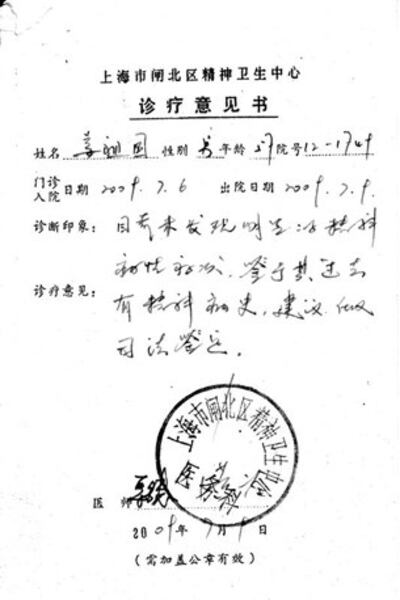 上海市闸北区精神卫生中心
诊疗意见书
姓名 祖国 性别 男 年龄 院号 12-1749
门诊入院日期 2009.7.6 出院日期 2009.7.9.
诊断印象： 目前未发现明显的精神科
药性症状，鉴于其过去
诊疗意见： 有精神病史，建议做
司法鉴定。
上海市闸北区精神卫生中心
医师
2009年7月9日
（需加盖公章有效）